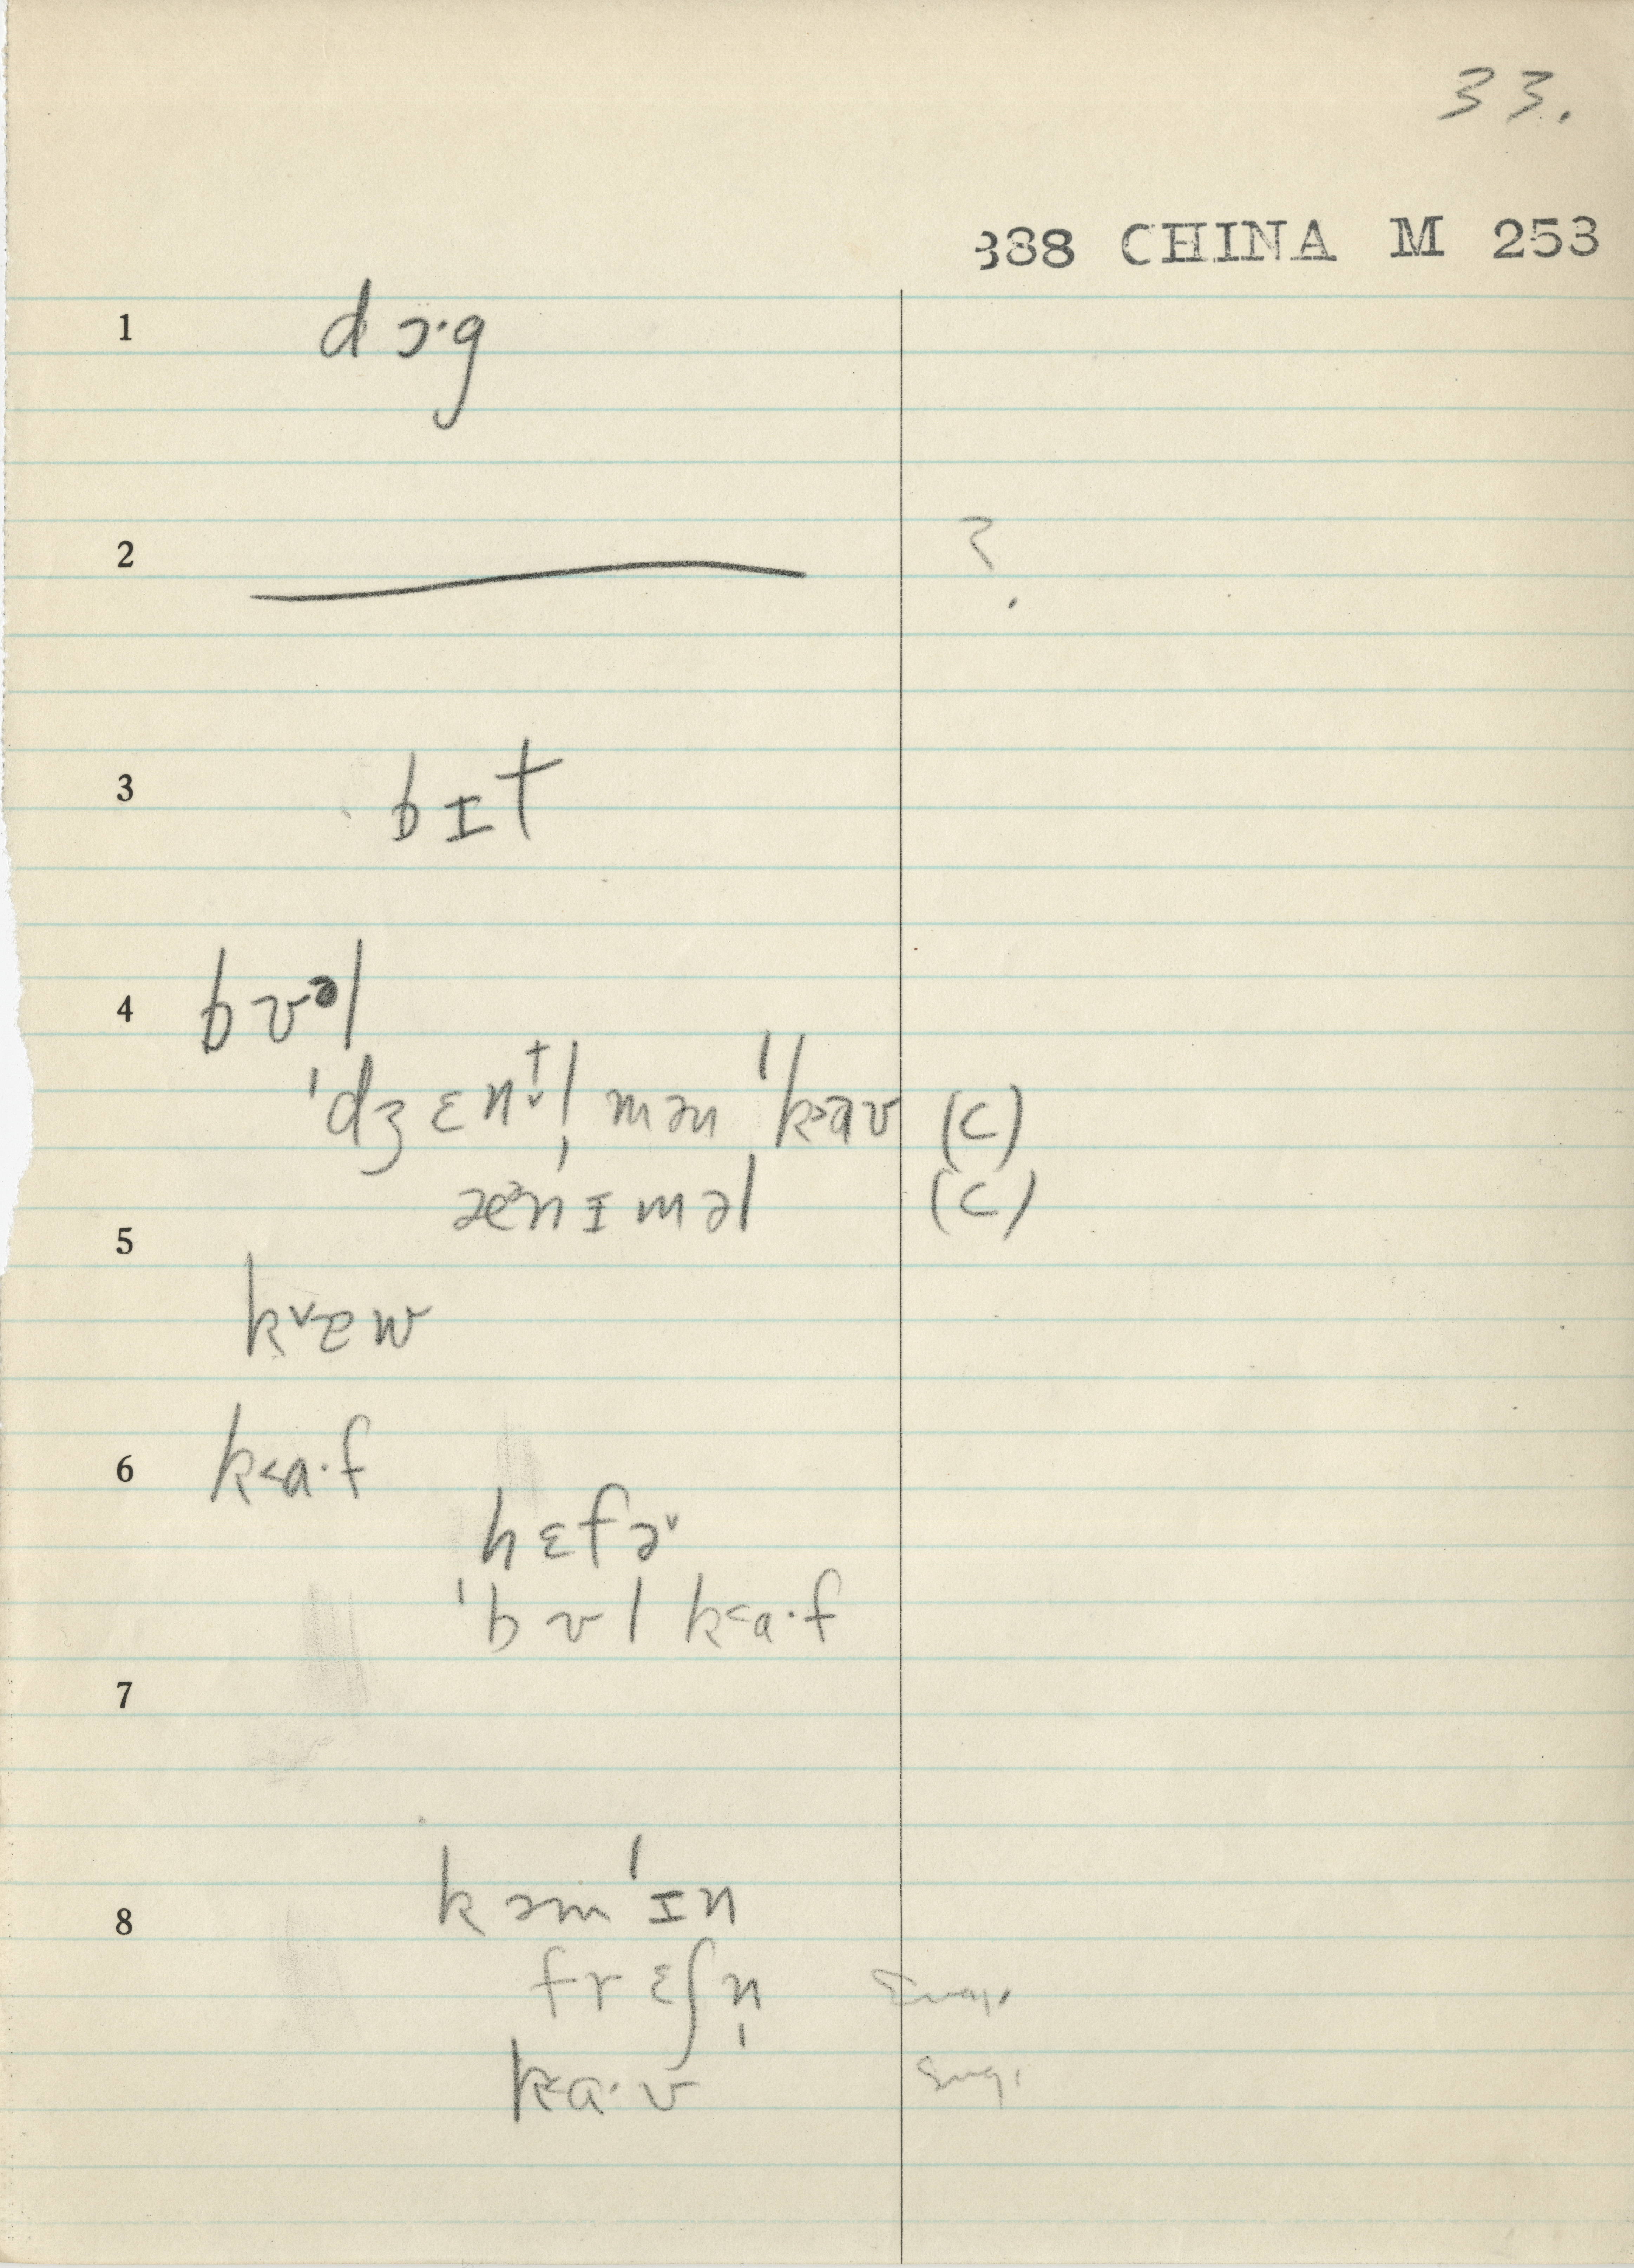 33.
388 CHINA M 253
1 dɔ·g
2 ?
3 bɪt
4 bʊᵊl
ˈdʒɛnt̬l̩ mən ˈk>aʊ (c)
æᵊnɪməl (c)
5
k˅ɐw
6 k<a·f
hɛfə˅
ˈbʊl k<a·f
7
kəmˈɪn
8
frɛʃn̩
k<a·ʊ sug.